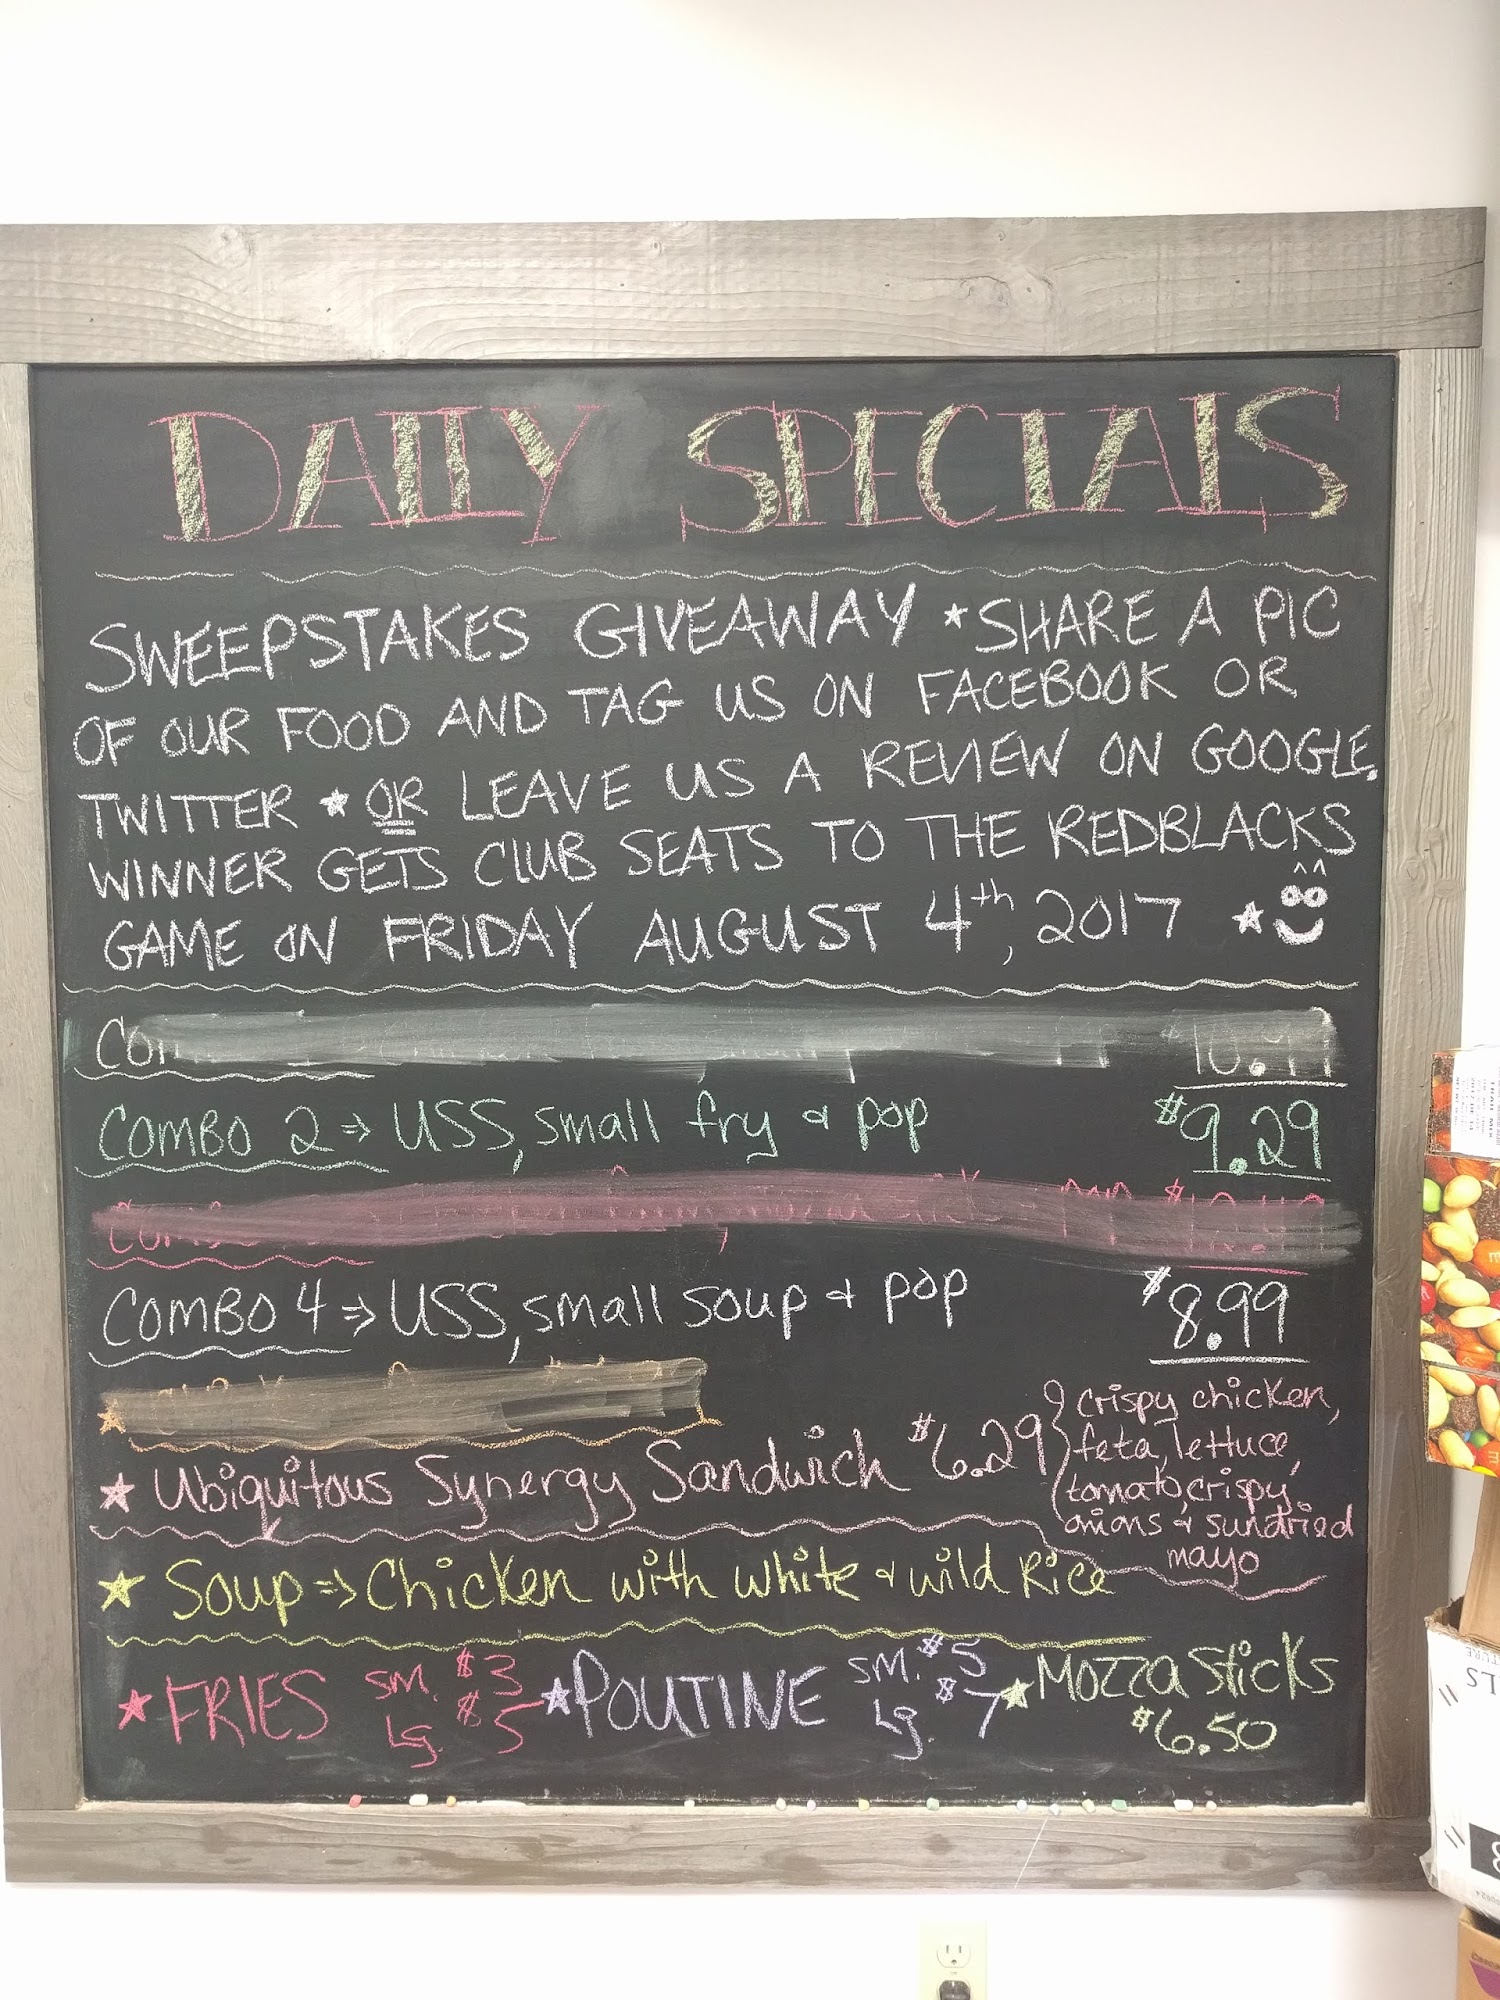 DAILY SPECIALS
SWEEPSTAKES GIVEAWAY * SHARE A PIC
OF OUR FOOD AND TAG US ON FACEBOOK OR
TWITTER * OR LEAVE US A REVIEW ON GOOGLE.
WINNER GETS CLUB SEATS TO THE REDBLACKS
GAME ON FRIDAY AUGUST 4th, 2017
COMBO 2 => USS, small fry & pop $9.29
COMBO 4 => USS, small soup & pop $8.99
Ubiquitous Synergy Sandwich $6.29
crispy chicken,
feta, lettuce,
tomato, crispy
onions & sundried
mayo
Soup => Chicken with white & wild Rice
FRIES SM. $3
Lg. $5
POUTINE SM. $5
Lg. $7
MOZZA Sticks
$6.50